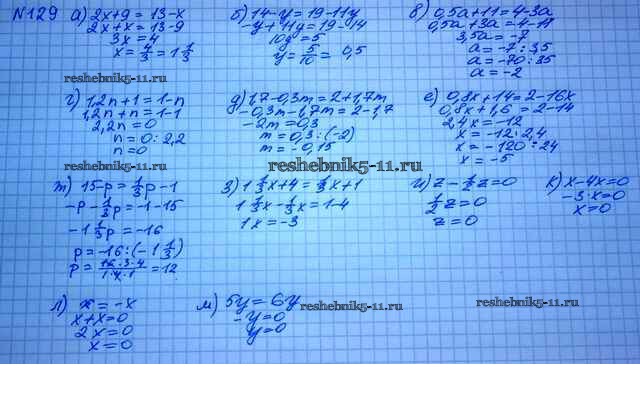 №129 а) 2x+9 = 13-x
2x+x = 13-9
3x = 4
x = 4/3 = 1 1/3
б) 14-y = 19-11y
-y+11y = 19-14
10y = 5
y = 5/10 = 0,5
в) 0,5a+11 = 4-3a
0,5a+3a = 4-11
3,5a = -7
a = -7 : 3,5
a = -70 : 35
a = -2
г) 1,2n+1 = 1-n
1,2n+n = 1-1
2,2n = 0
n = 0 : 2,2
n = 0
д) 1,7-0,3m = 2+1,7m
-0,3m-1,7m = 2-1,7
-2m = 0,3
m = 0,3 : (-2)
m = -0,15
е) 0,8x+14 = 2-1,6x
0,8x+1,6 = 2-14
2,4x = -12
x = -12 : 2,4
x = -120 : 24
x = -5
reshebnik5-11.ru
reshebnik5-11.ru
ж) 15-p = 1/3p-1
-p-1/3p = -1-15
-1 1/3p = -16
p = -16 : (-1 1/3)
p = 16·3·4/1·4·1 = 12
з) 1 1/3x+4 = 1/3x+1
1 1/3x-1/3x = 1-4
1x = -3
и) z-1/2z = 0
1/2z = 0
z = 0
к) x-4x = 0
-3x = 0
x = 0
л) x = -x
x+x = 0
2x = 0
x = 0
м) 5y = 6y
-y = 0
y = 0
reshebnik5-11.ru
reshebnik5-11.ru